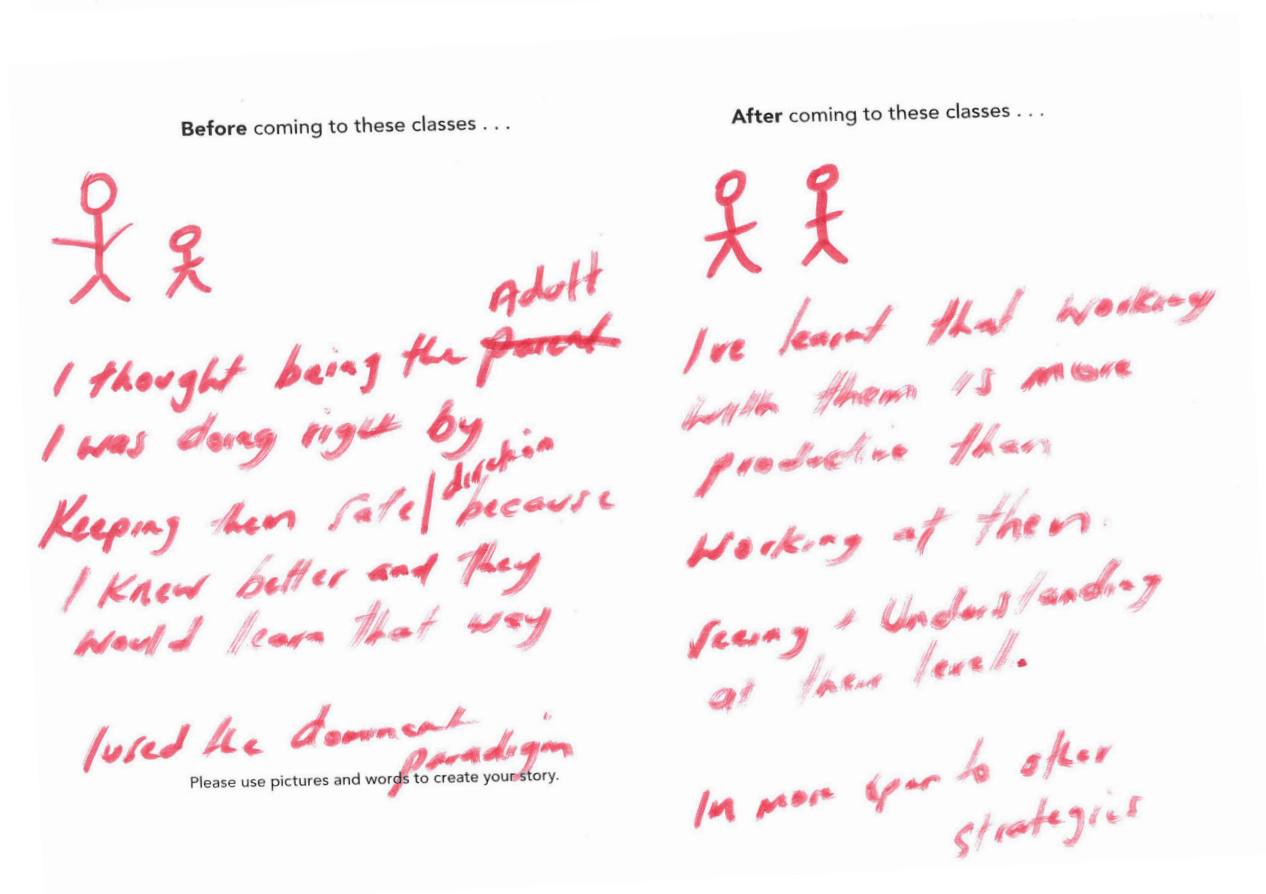 Before coming to these classes . . .
Adult
I thought being the parent
I was doing right by
Keeping them safe/direction because
I Know better and they
would learn that way
I used the dominant
paradigm
Please use pictures and words to create your story.
After coming to these classes . . .
I've learnt that working
with them is more
productive than
working at them.
Seeing + Understanding
at their level.
Im more open to other
strategies